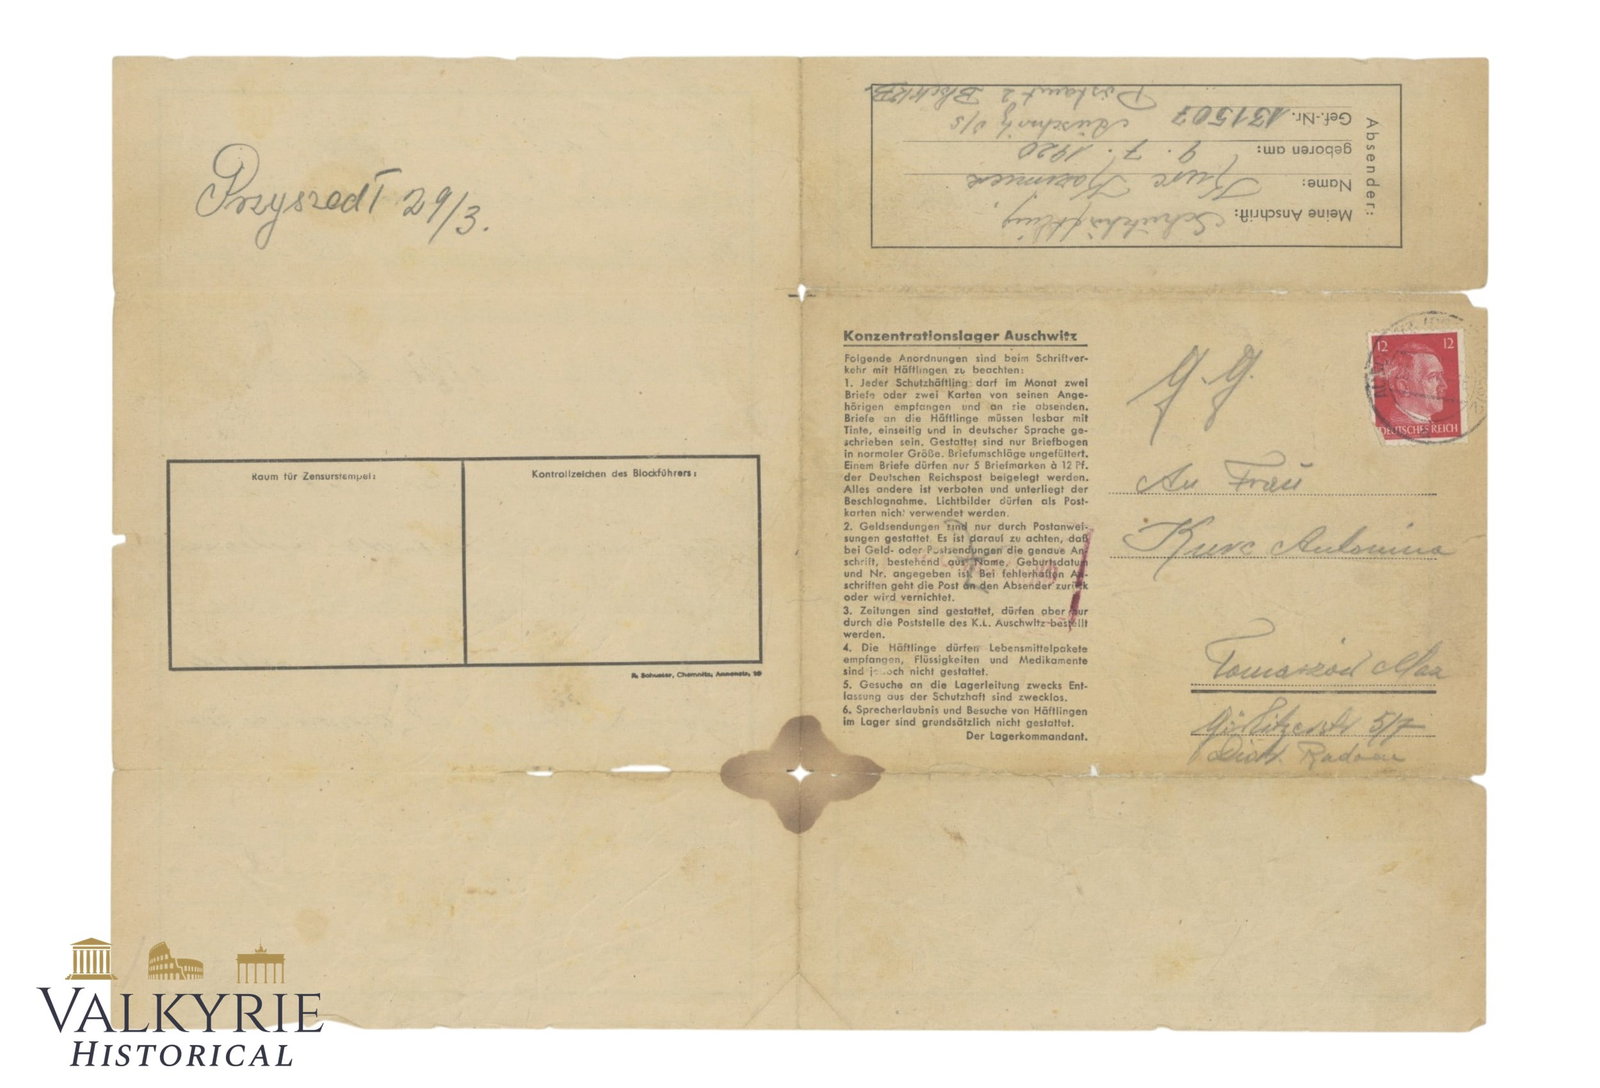 Przyszedł 29/3.
Raum für Zensurstempel:
Kontrollzeichen des Blockführers:
Absender:
Meine Anschrift: Schutzhäftling.
Name: Kurc Kazimierz
geboren am: 9. 7. 1920
Gef.-Nr. 131507 Auschwitz O/S
Postamt 2 Block
Konzentrationslager Auschwitz
Folgende Anordnungen sind beim Schriftver-
kehr mit Häftlingen zu beachten:
1. Jeder Schutzhäftling darf im Monat zwei
Briefe oder zwei Karten von seinen Ange-
hörigen empfangen und an sie absenden.
Briefe an die Häftlinge müssen lesbar mit
Tinte, einseitig und in deutscher Sprache ge-
schrieben sein. Gestattet sind nur Briefbogen
in normaler Größe. Briefumschläge ungefüttert.
Einem Briefe dürfen nur 5 Briefmarken à 12 Pf.
der Deutschen Reichspost beigelegt werden.
Alles andere ist verboten und unterliegt der
Beschlagnahme. Lichtbilder dürfen als Post-
karten nicht verwendet werden.
2. Geldsendungen sind nur durch Postanwei-
sungen gestattet. Es ist darauf zu achten, daß
bei Geld- oder Postsendungen die genaue An-
schrift, bestehend aus Name, Geburtsdatum
und Nr. angegeben ist. Bei fehlerhaften An-
schriften geht die Post an den Absender zurück
oder wird vernichtet.
3. Zeitungen sind gestattet, dürfen aber nur
durch die Poststelle des K.L. Auschwitz bestellt
werden.
4. Die Häftlinge dürfen Lebensmittelpakete
empfangen, Flüssigkeiten und Medikamente
sind jedoch nicht gestattet.
5. Gesuche an die Lagerleitung zwecks Ent-
lassung aus der Schutzhaft sind zwecklos.
6. Sprecherlaubnis und Besuche von Häftlingen
im Lager sind grundsätzlich nicht gestattet.
Der Lagerkommandant.
12 12
DEUTSCHES REICH
G. G.
An Frau
Kurc Antonina
Tomaszów Maz
Görlitzerstr 5/7
Distr. Radom
R. Schuster, Chemnitz, Annenstr. 19
VALKYRIE
HISTORICAL